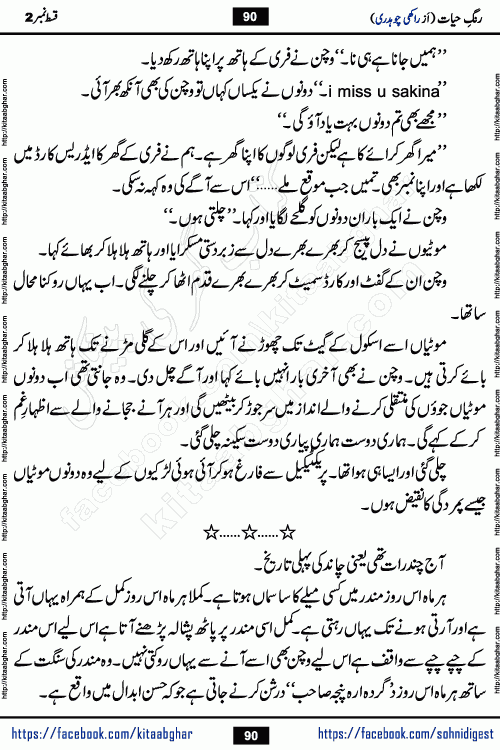 رنگِ حیات (از راکھی چوہدری)
90
قسط نمبر 2
’’ہمیں جانا ہے ہی نا۔‘‘ وچن نے فری کے ہاتھ پر اپنا ہاتھ رکھ دیا۔
’’i miss u sakina۔‘‘ دونوں نے یکساں کہاں تو وچن کی بھی آنکھ بھر آئی۔
’’مجھے بھی تم دونوں بہت یاد آؤ گی۔‘‘
’’میرا گھر کرائے کا ہے لیکن فری لوگوں کا اپنا گھر ہے۔ ہم نے فری کے گھر کا ایڈریس کارڈ میں
لکھا ہے اور اپنا نمبر بھی۔ تمیں جب موقع ملے......‘‘ اس سے آگے کی وہ کہہ نہ سکی۔
وچن نے ایک بار ان دونوں کو گلے لگایا اور کہا۔ ’’چلتی ہوں۔‘‘
موٹیوں نے دل پسیج کر بھرے بھرے دل سے زبردستی مسکرایا اور ہاتھ ہلا ہلا کر بھائے کہا۔
وچن ان کے گفٹ اور کارڈ سمیٹ کر بھرے بھرے قدم اٹھا کر چلنے لگی۔ اب یہاں روکنا محال
ساتھا۔
موٹیاں اسے اسکول کے گیٹ تک چھوڑنے آئیں اور اس کے گلی مڑنے تک ہاتھ ہلا ہلا کر
بائے کرتی ہیں۔ وچن نے بھی آخری بار انہیں بائے کہا اور آگے چل دی۔ وہ جانتی تھی اب دونوں
موٹیاں جوؤں کی منتقلی کرنے والے انداز میں سر جوڑ کر بیٹھیں گی اور ہر آنے ججانے والے سے اظہارِ غم
کر کے کہے گی۔ ہماری دوست ہماری پیاری دوست سکینہ چلی گئی۔
چلی گئی اور ایسا ہی ہوا تھا۔ پریکٹیکل سے فارغ ہو کر آئی ہوئی لڑکیوں کے لیے وہ دونوں موٹیاں
جیسے پھر دگی کا نقیض ہوں۔
☆......☆......☆
آج چند رات تھی یعنی چاند کی پہلی تاریخ۔
ہر ماہ اس روز مندر میں کسی میلے کا سا سماں ہوتا ہے۔ کملا ہر ماہ اس روز کمل کے ہمراہ یہاں آتی
ہے اور آرتی ہونے تک یہاں رہتی ہے۔ کمل اسی مندر پر پاٹھ پشالہ پڑھنے آتا ہے اس لیے اس مندر
کے چپے چپے سے واقف ہے اس لیے وچن بھی اسے آنے سے یہاں روکتی نہیں۔ وہ مندر کی سنگت کے
ساتھ ہر ماہ اس روز دگردوارہ پنجہ صاحب’’ درشن کرنے جاتی ہے جو کہ حسن ابدال میں واقع ہے۔
https://facebook.com/kitaabghar
90
https://facebook.com/sohnidigest
http://kitaabghar.com